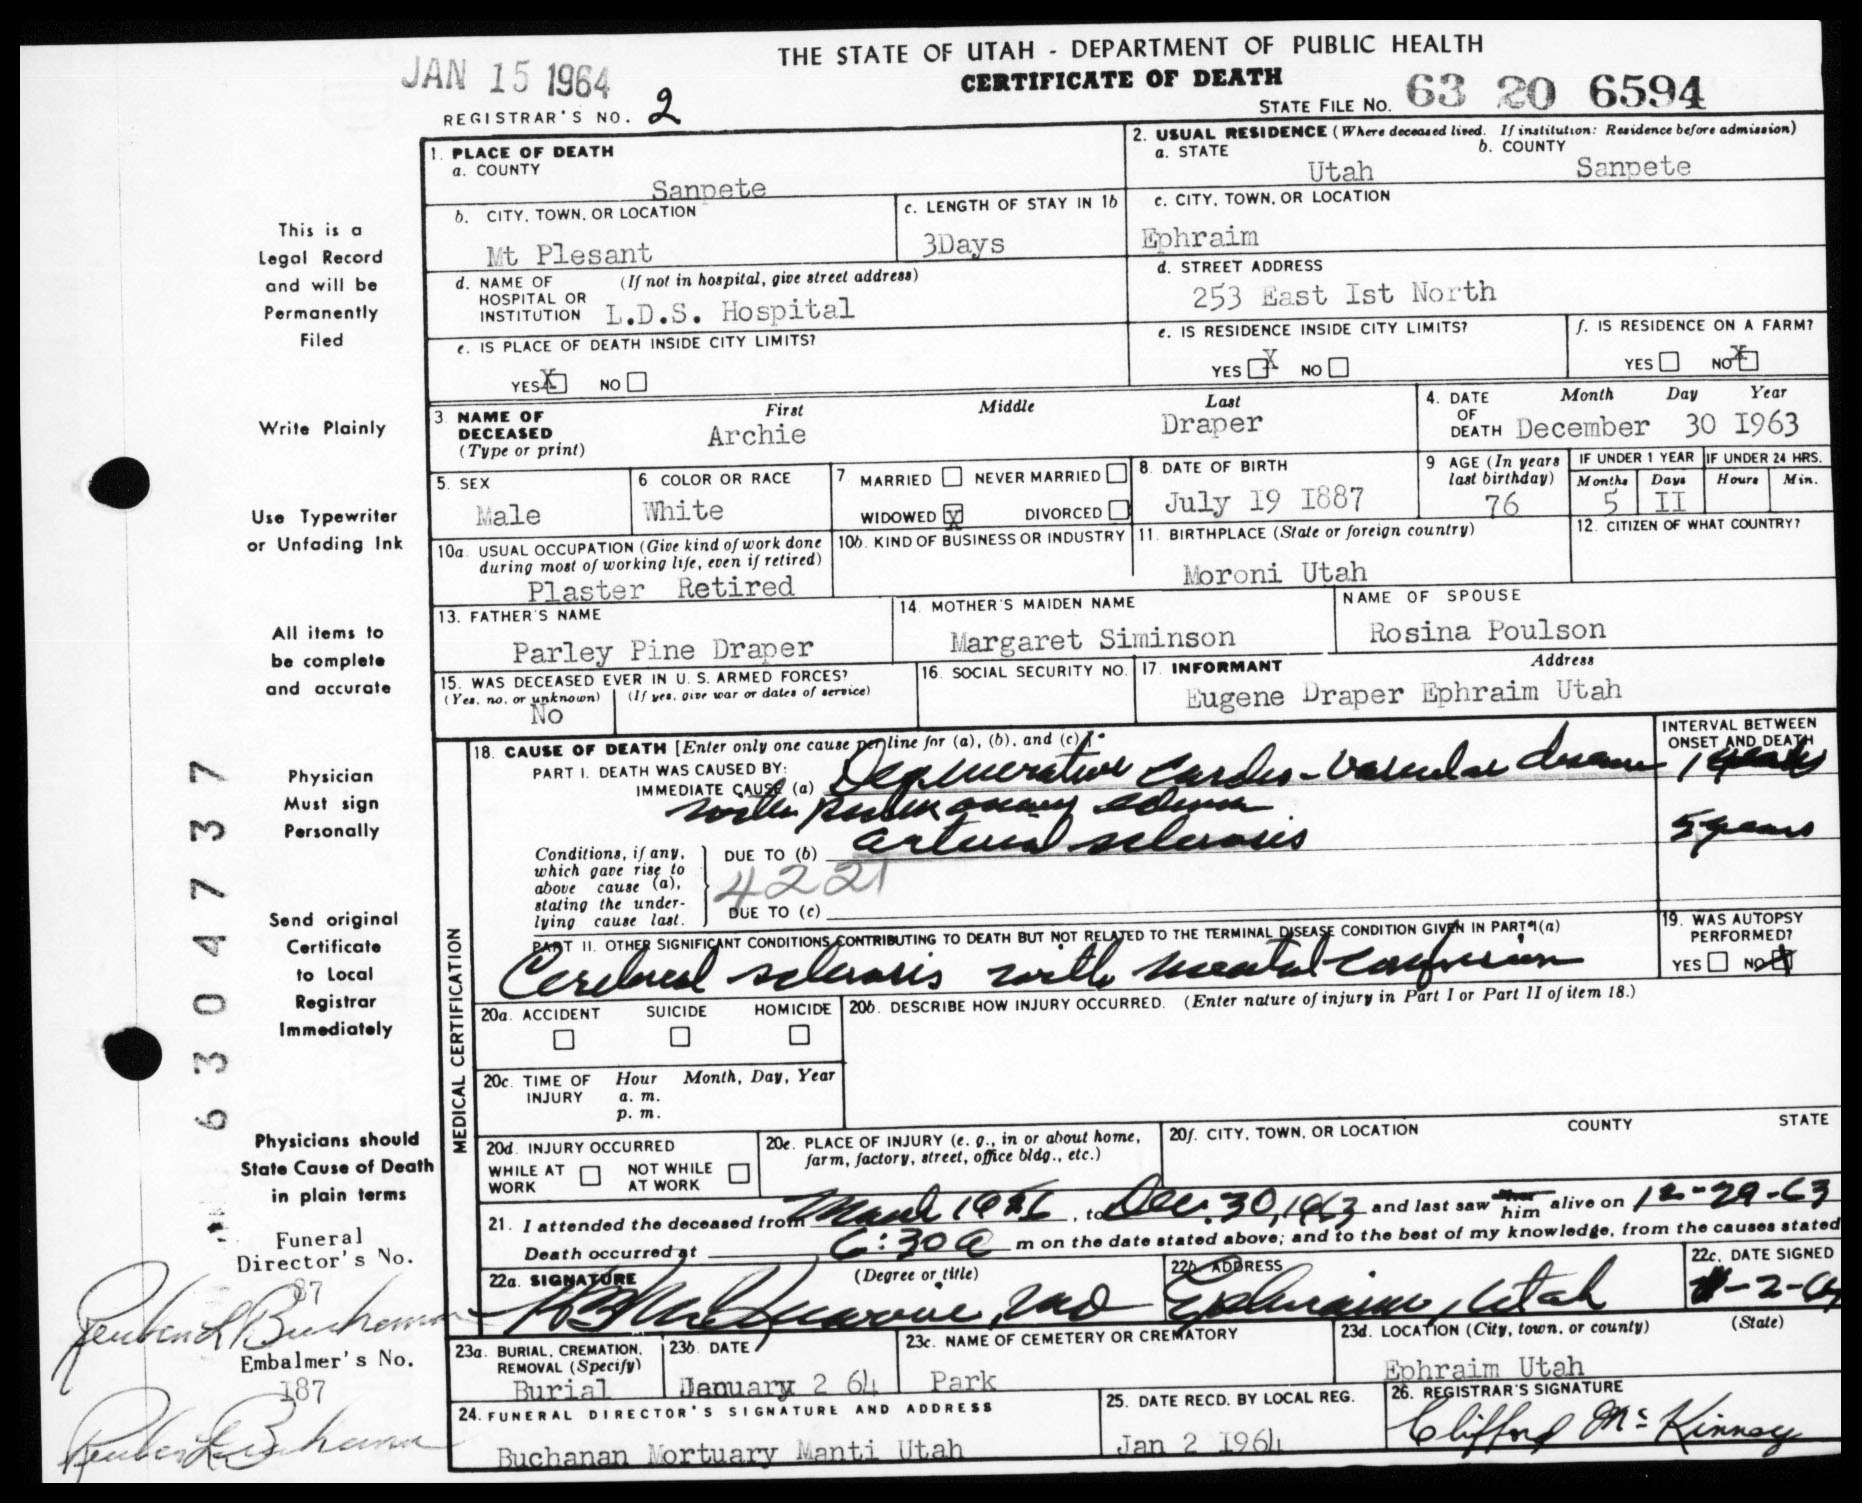 THE STATE OF UTAH - DEPARTMENT OF PUBLIC HEALTH
CERTIFICATE OF DEATH
JAN 15 1964
REGISTRAR'S NO. 2
STATE FILE NO. 63 20 6594
This is a
Legal Record
and will be
Permanently
Filed
Write Plainly
Use Typewriter
or Unfading Ink
All items to
be complete
and accurate
Physician
Must sign
Personally
Send original
Certificate
to Local
Registrar
Immediately
Physicians should
State Cause of Death
in plain terms
6 3 0 4 7 3 7
Funeral
Director's No.
87
Reuben L Buchanan
Embalmer's No.
187
Reuben L Buchanan
1. PLACE OF DEATH
a. COUNTY
Sanpete
b. CITY, TOWN, OR LOCATION
Mt Plesant
c. LENGTH OF STAY IN 1b
3Days
d. NAME OF (If not in hospital, give street address)
HOSPITAL OR
INSTITUTION L.D.S. Hospital
e. IS PLACE OF DEATH INSIDE CITY LIMITS?
YES X NO
2. USUAL RESIDENCE (Where deceased lived. If institution: Residence before admission)
a. STATE
Utah
b. COUNTY
Sanpete
c. CITY, TOWN, OR LOCATION
Ephraim
d. STREET ADDRESS
253 East Ist North
e. IS RESIDENCE INSIDE CITY LIMITS?
YES X NO
f. IS RESIDENCE ON A FARM?
YES NO X
3. NAME OF DECEASED (Type or print)
First Middle Last
Archie Draper
4. DATE OF DEATH
Month Day Year
December 30 I963
5. SEX
Male
6 COLOR OR RACE
White
7 MARRIED NEVER MARRIED
WIDOWED X DIVORCED
8. DATE OF BIRTH
July I9 I887
9 AGE (In years last birthday)
76
IF UNDER 1 YEAR
Months Days
5 II
IF UNDER 24 HRS.
Hours Min.
10a. USUAL OCCUPATION (Give kind of work done
during most of working life, even if retired)
Plaster Retired
10b. KIND OF BUSINESS OR INDUSTRY
11. BIRTHPLACE (State or foreign country)
Moroni Utah
12. CITIZEN OF WHAT COUNTRY?
13. FATHER'S NAME
Parley Pine Draper
14. MOTHER'S MAIDEN NAME
Margaret Siminson
NAME OF SPOUSE
Rosina Poulson
15. WAS DECEASED EVER IN U. S. ARMED FORCES?
(Yes, no, or unknown) (If yes, give war or dates of service)
No
16. SOCIAL SECURITY NO.
17. INFORMANT Address
Eugene Draper Ephraim Utah
MEDICAL CERTIFICATION
18. CAUSE OF DEATH [Enter only one cause per line for (a), (b), and (c).]
PART I. DEATH WAS CAUSED BY:
IMMEDIATE CAUSE (a) Degenerative cardio-vascular disease
with pulmonary edema
INTERVAL BETWEEN
ONSET AND DEATH
years
5 years
Conditions, if any,
which gave rise to
above cause (a),
stating the under-
lying cause last.
DUE TO (b) arterial sclerosis
4221
DUE TO (c)
PART II. OTHER SIGNIFICANT CONDITIONS CONTRIBUTING TO DEATH BUT NOT RELATED TO THE TERMINAL DISEASE CONDITION GIVEN IN PART I(a)
Cerebral sclerosis with mental confusion
19. WAS AUTOPSY
PERFORMED?
YES NO X
20a. ACCIDENT SUICIDE HOMICIDE
20b. DESCRIBE HOW INJURY OCCURRED. (Enter nature of injury in Part I or Part II of item 18.)
20c. TIME OF INJURY
Hour Month, Day, Year
a. m.
p. m.
20d. INJURY OCCURRED
WHILE AT WORK NOT WHILE AT WORK
20e. PLACE OF INJURY (e. g., in or about home,
farm, factory, street, office bldg., etc.)
20f. CITY, TOWN, OR LOCATION COUNTY STATE
21. I attended the deceased from March 1956, to Dec. 30, 1963 and last saw him alive on 12-29-63
Death occurred at 6:30 a m on the date stated above; and to the best of my knowledge, from the causes stated
22a. SIGNATURE (Degree or title)
MD
22b. ADDRESS
Ephraim, Utah
22c. DATE SIGNED
1-2-64
23a. BURIAL, CREMATION,
REMOVAL (Specify)
Burial
23b. DATE
January 2 64
23c. NAME OF CEMETERY OR CREMATORY
Park
23d. LOCATION (City, town, or county) (State)
Ephraim Utah
24. FUNERAL DIRECTOR'S SIGNATURE AND ADDRESS
Buchanan Mortuary Manti Utah
25. DATE RECD. BY LOCAL REG.
Jan 2 I964
26. REGISTRAR'S SIGNATURE
Clifford McKinney